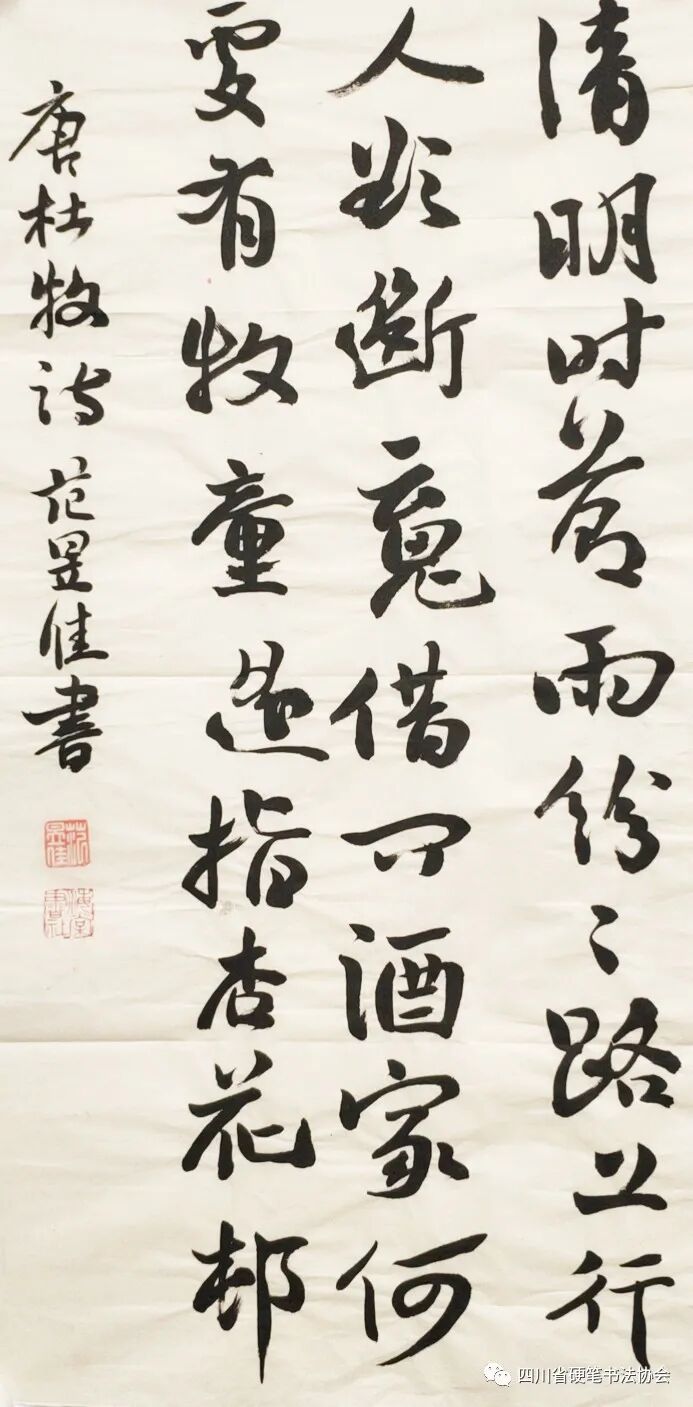 清明时節雨紛〻路上行
人欲斷魂借问酒家何
處有牧童遥指杏花邨
唐杜牧诗 范昱佳書
范昱佳
四川省硬笔书法协会